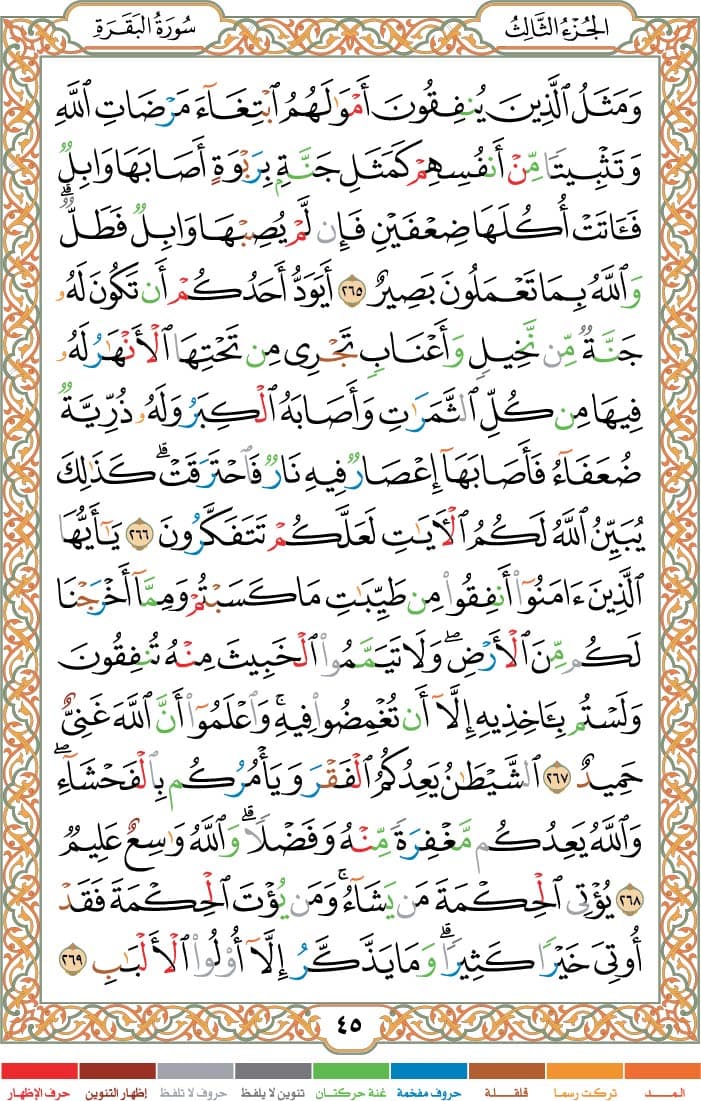 الجُزْءُ الثَّالِثُ
سُورَةُ البَقَرَةِ
وَمَثَلُ ٱلَّذِينَ يُنفِقُونَ أَمْوَٰلَهُمُ ٱبْتِغَآءَ مَرْضَاتِ ٱللَّهِ
وَتَثْبِيتًا مِّنْ أَنفُسِهِمْ كَمَثَلِ جَنَّةٍۭ بِرَبْوَةٍ أَصَابَهَا وَابِلٌ
فَـَٔاتَتْ أُكُلَهَا ضِعْفَيْنِ فَإِن لَّمْ يُصِبْهَا وَابِلٌ فَطَلٌّ ۗ
وَٱللَّهُ بِمَا تَعْمَلُونَ بَصِيرٌ ٢٦٥ أَيَوَدُّ أَحَدُكُمْ أَن تَكُونَ لَهُۥ
جَنَّةٌ مِّن نَّخِيلٍ وَأَعْنَابٍ تَجْرِى مِن تَحْتِهَا ٱلْأَنْهَـٰرُ لَهُۥ
فِيهَا مِن كُلِّ ٱلثَّمَرَٰتِ وَأَصَابَهُ ٱلْكِبَرُ وَلَهُۥ ذُرِّيَّةٌ
ضُعَفَآءُ فَأَصَابَهَآ إِعْصَارٌ فِيهِ نَارٌ فَٱحْتَرَقَتْ ۗ كَذَٰلِكَ
يُبَيِّنُ ٱللَّهُ لَكُمُ ٱلْـَٔايَـٰتِ لَعَلَّكُمْ تَتَفَكَّرُونَ ٢٦٦ يَـٰٓأَيُّهَا
ٱلَّذِينَ ءَامَنُوٓا۟ أَنفِقُوا۟ مِن طَيِّبَـٰتِ مَا كَسَبْتُمْ وَمِمَّآ أَخْرَجْنَا
لَكُم مِّنَ ٱلْأَرْضِ ۖ وَلَا تَيَمَّمُوا۟ ٱلْخَبِيثَ مِنْهُ تُنفِقُونَ
وَلَسْتُم بِـَٔاخِذِيهِ إِلَّآ أَن تُغْمِضُوا۟ فِيهِ ۚ وَٱعْلَمُوٓا۟ أَنَّ ٱللَّهَ غَنِىٌّ
حَمِيدٌ ٢٦٧ ٱلشَّيْطَـٰنُ يَعِدُكُمُ ٱلْفَقْرَ وَيَأْمُرُكُم بِٱلْفَحْشَآءِ ۖ
وَٱللَّهُ يَعِدُكُم مَّغْفِرَةً مِّنْهُ وَفَضْلًا ۗ وَٱللَّهُ وَٰسِعٌ عَلِيمٌ
٢٦٨ يُؤْتِى ٱلْحِكْمَةَ مَن يَشَآءُ ۚ وَمَن يُؤْتَ ٱلْحِكْمَةَ فَقَدْ
أُوتِىَ خَيْرًا كَثِيرًا ۗ وَمَا يَذَّكَّرُ إِلَّآ أُو۟لُوا۟ ٱلْأَلْبَـٰبِ ٢٦٩
٤٥
المـــد
تركت رسما
قلقـلة
حروف مفخمة
غنة حركتان
تنوين لا يلفظ
حروف لا تلفظ
إظهار التنوين
حرف الإظهار